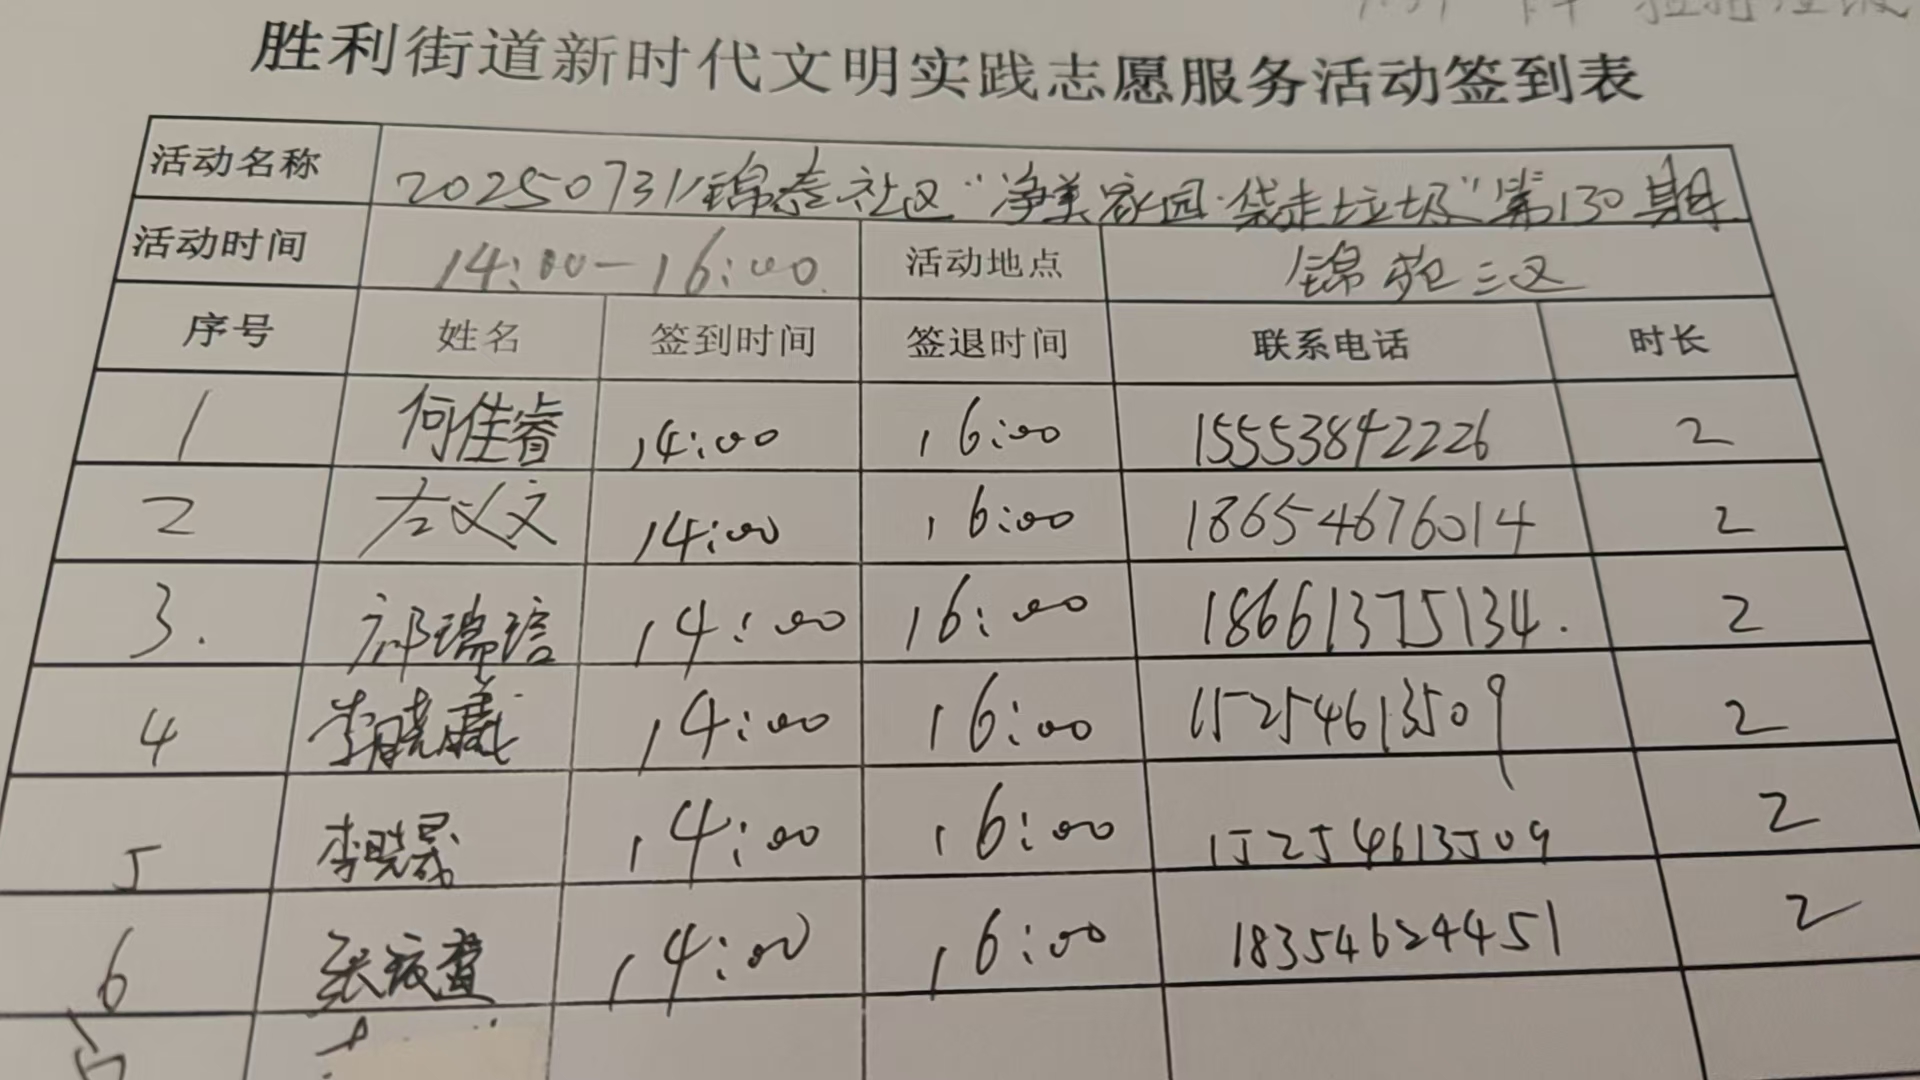 胜利街道新时代文明实践志愿服务活动签到表
活动名称 20250731锦泰社区“净美家园·袋走垃圾”第130期
活动时间 14:00-16:00 活动地点 锦苑三区
序号 姓名 签到时间 签退时间 联系电话 时长
1 何佳睿 14:00 16:00 15553842226 2
2 左义文 14:00 16:00 18654676014 2
3. 祁瑞 14:00 16:00 18661375134. 2
4 李晓 14:00 16:00 15254613509 2
5 李晓晟 14:00 16:00 15254613509 2
6 张 14:00 16:00 18354624451 2